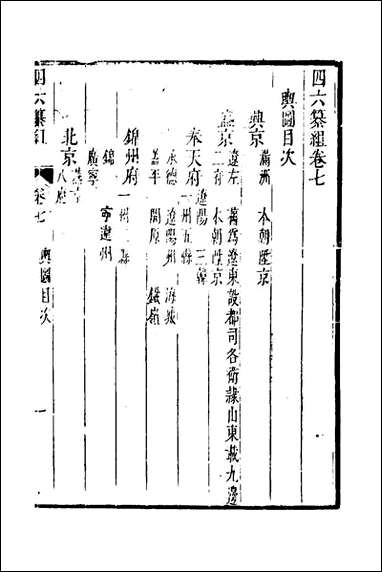 四六纂組卷七
輿圖目次
興京 滿洲 本朝陞京
盛京 遼左 舊爲遼東設都司各衛隸山東載九邊
二府 本朝陞京
遼陽 三韓
奉天府 一州五縣
永德 遼陽州 海城
蓋平 開原 鐵嶺
錦州府 一州二縣
錦 寧遠州
廣寧
北京 八府
四六纂組 卷七 輿圖目次 一